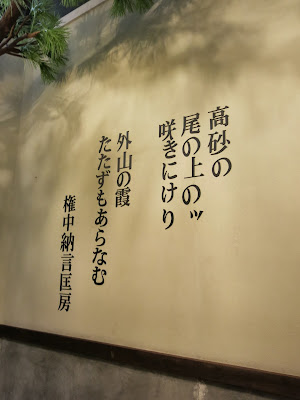 高砂の
尾の上のッ
咲きにけり
外山の霞
たたずもあらなむ
権中納言匡房